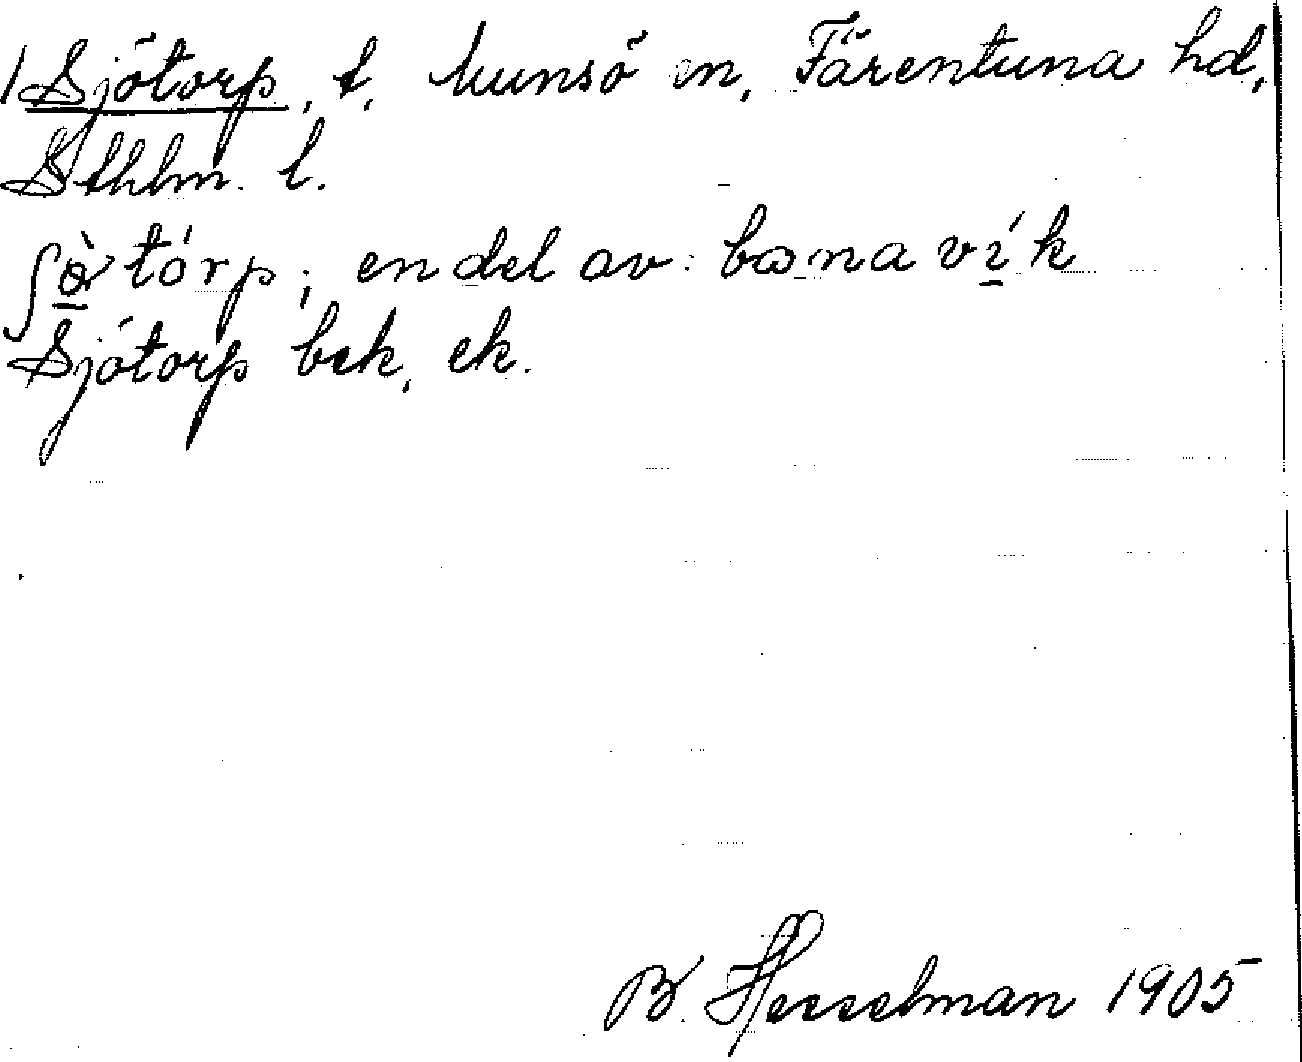 /Sjötorp, t, Munsö sn, Färentuna hd,
Sthlm. l.
ʃø̀tórp; en del av: bonavík
Sjötorp bek, ek.
B. Hesselman 1905